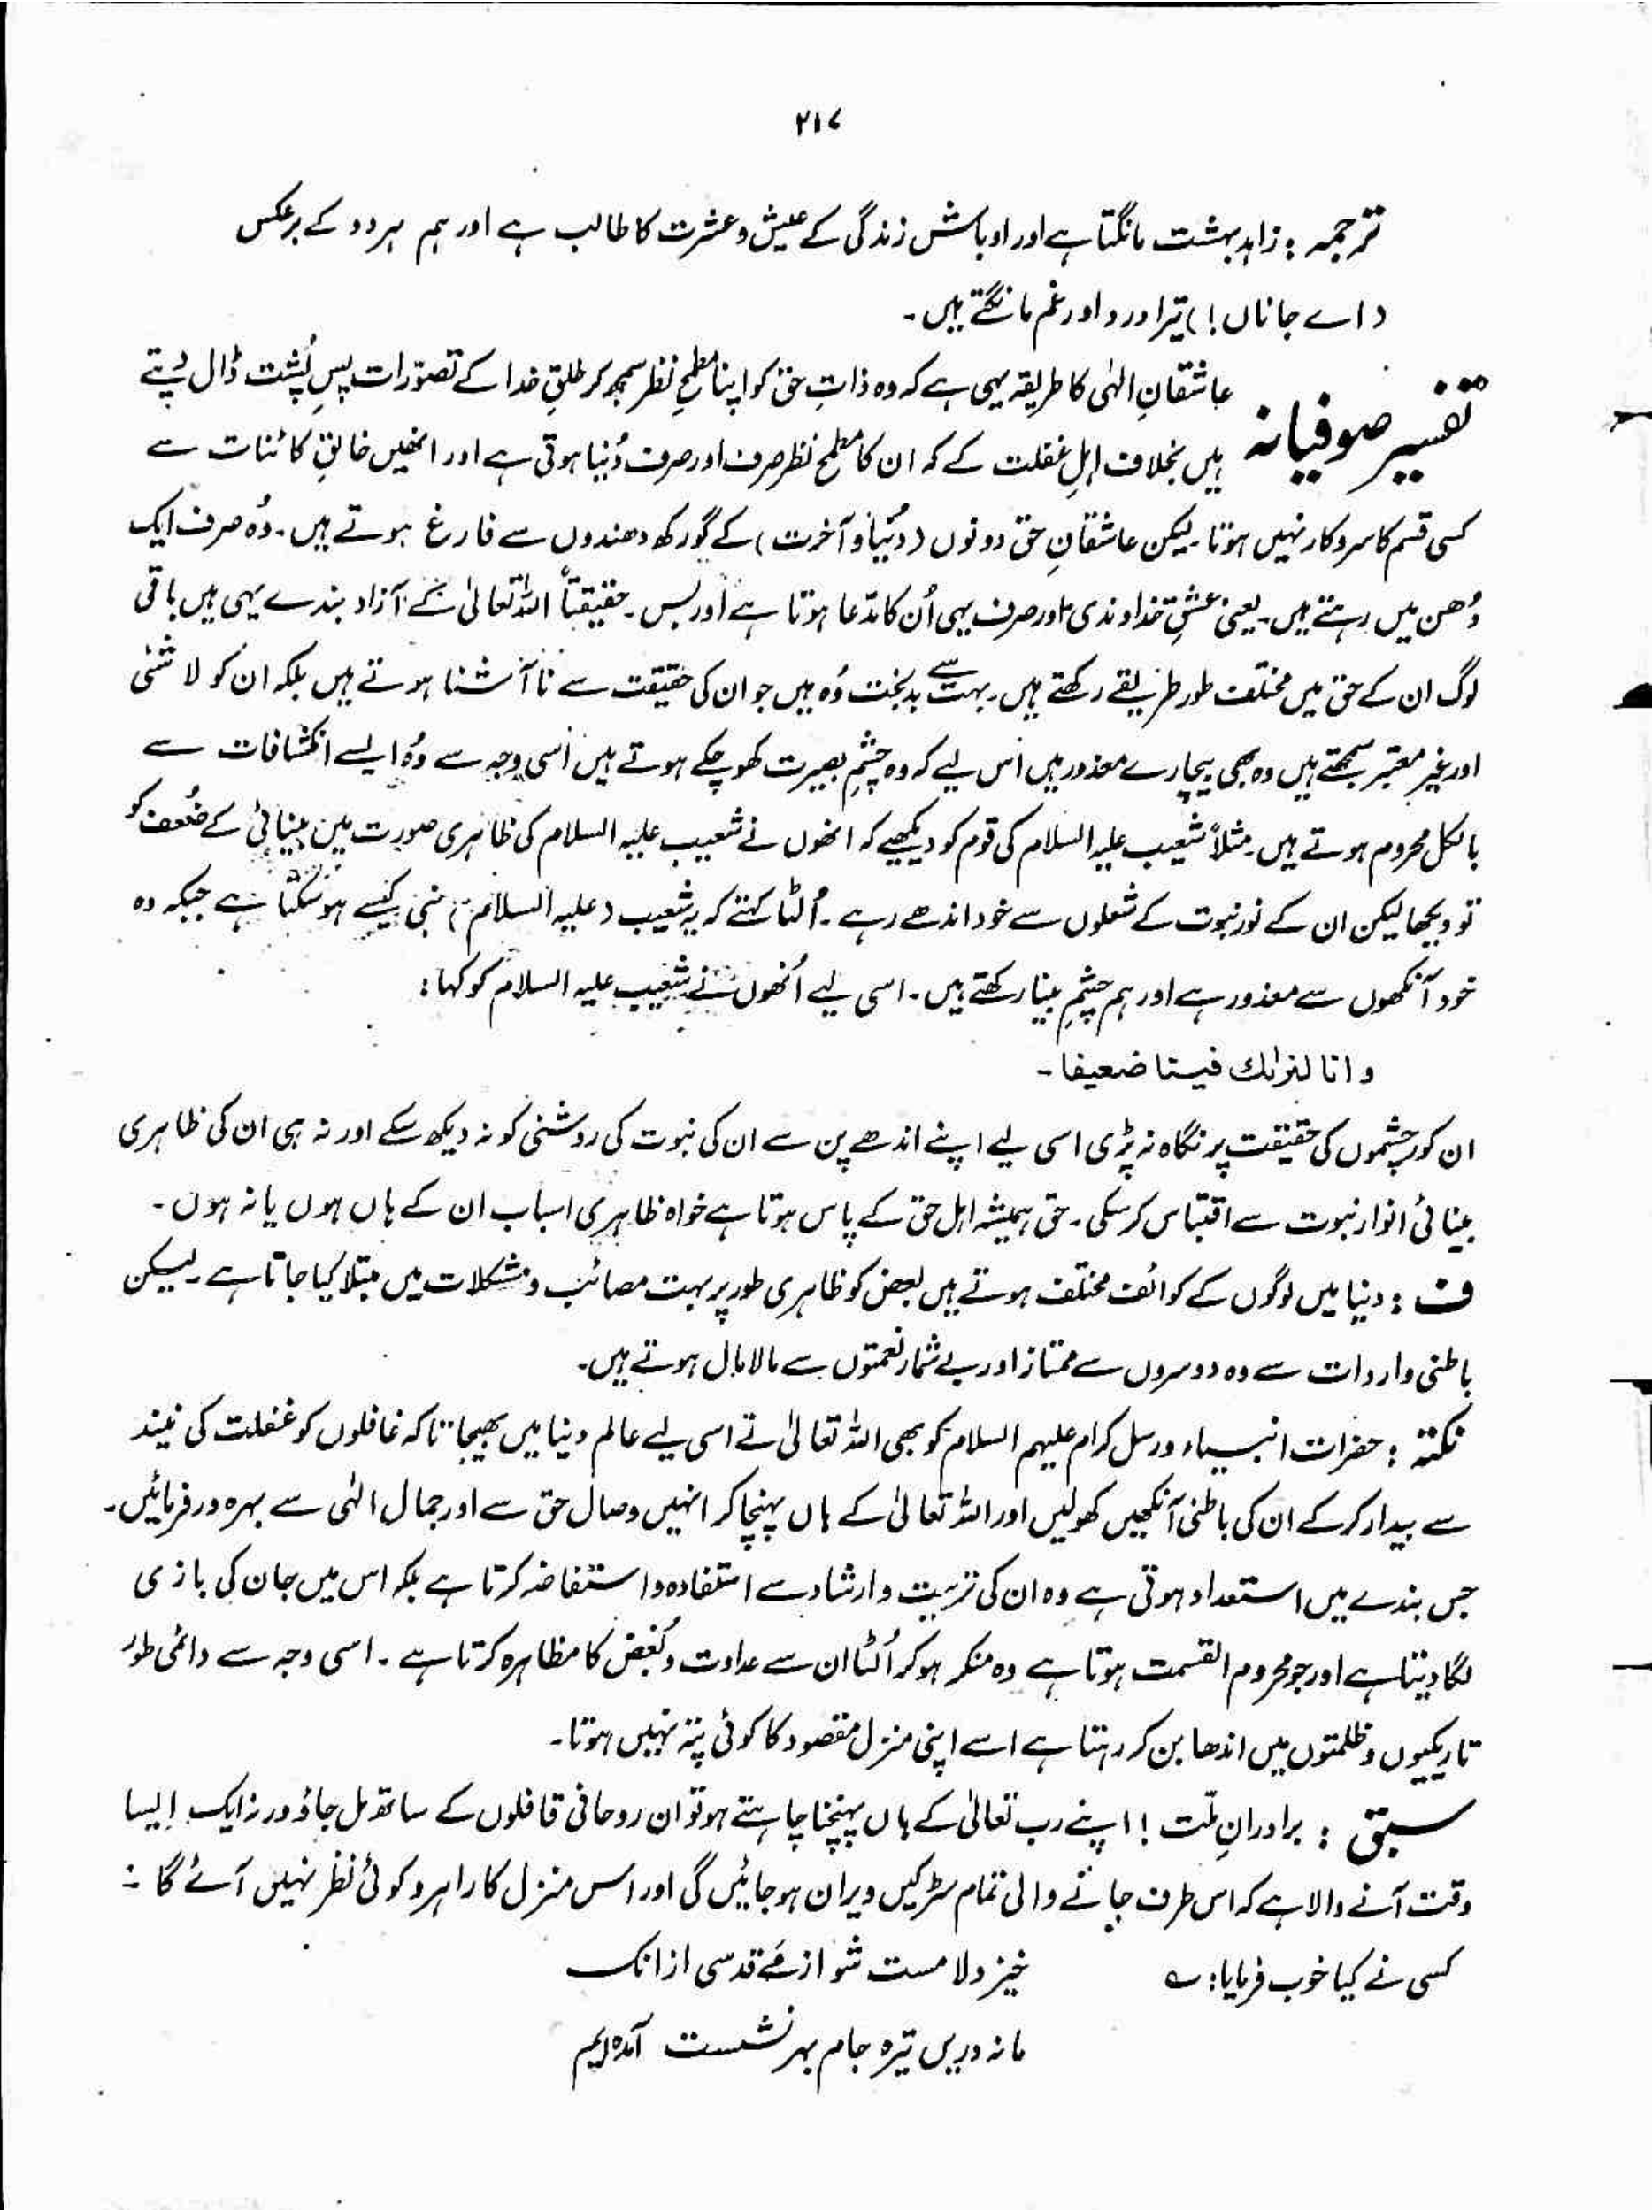 ۲۱۷
ترجمہ : زاہد بہشت مانگتا ہے اور اوباش زندگی کے عیش و عشرت کا طالب ہے اور ہم ہر دو کے برعکس
(اے جاناں!) تیرا درد اور غم مانگتے ہیں۔
تفسیر صوفیانہ عاشقانِ الٰہی کا طریقہ یہی ہے کہ وہ ذاتِ حق کو اپنا مطمحِ نظر سمجھ کر خلقِ خدا کے تصوّرات پسِ پُشت ڈال دیتے
ہیں بخلاف اہلِ غفلت کے کہ ان کا مطمح نظر صرف اور صرف دُنیا ہوتی ہے اور انھیں خالقِ کائنات سے
کسی قسم کا سروکار نہیں ہوتا۔ لیکن عاشقانِ حق دونوں (دُنیا و آخرت) کے گورکھ دھندوں سے فارغ ہوتے ہیں۔ وُہ صرف ایک
دُھن میں رہتے ہیں۔ یعنی عشقِ خداوندی اور صرف یہی اُن کا مدّعا ہوتا ہے اور بس۔ حقیقتاً اللہ تعالیٰ کے آزاد بندے یہی ہیں باقی
لوگ ان کے حق میں مختلف طور طریقے رکھتے ہیں۔ بہت سے بدبخت وُہ ہیں جو ان کی حقیقت سے ناآشنا ہوتے ہیں بلکہ ان کو لاشئی
اور غیر معتبر سمجھتے ہیں وہ بھی بیچارے معذور ہیں اس لیے کہ وہ چشمِ بصیرت کھو چکے ہوتے ہیں اسی وجہ سے وُہ ایسے انکشافات سے
بالکل محروم ہوتے ہیں۔ مثلاً شعیب علیہ السلام کی قوم کو دیکھیے کہ انھوں نے شعیب علیہ السلام کی ظاہری صورت میں بینائی کے ضُعف کو
تو دیکھا لیکن ان کے نورِ نبوت کے شعلوں سے خود اندھے رہے۔ اُلٹا کہتے کہ یہ شعیب (علیہ السلام) نبی کیسے ہو سکتا ہے جبکہ وہ
خود آنکھوں سے معذور ہے اور ہم چشمِ بینا رکھتے ہیں۔ اسی لیے اُنھوں نے شعیب علیہ السلام کو کہا:
و انا لنرٰىك فينا ضعيفا۔
ان کور چشموں کی حقیقت پر نگاہ نہ پڑی اسی لیے اپنے اندھے پن سے ان کی نبوت کی روشنی کو نہ دیکھ سکے اور نہ ہی ان کی ظاہری
بینائی انوارِ نبوت سے اقتباس کر سکی۔ حق ہمیشہ اہل حق کے پاس ہوتا ہے خواہ ظاہری اسباب ان کے ہاں ہوں یا نہ ہوں۔
ف : دنیا میں لوگوں کے کوائف مختلف ہوتے ہیں بعض کو ظاہری طور پر بہت مصائب و مشکلات میں مبتلا کیا جاتا ہے۔ لیکن
باطنی واردات سے وہ دوسروں سے ممتاز اور بے شمار نعمتوں سے مالا مال ہوتے ہیں۔
نکتہ : حضرات انبیاء و رسل کرام علیہم السلام کو بھی اللہ تعالیٰ نے اسی لیے عالم دنیا میں بھیجا تاکہ غافلوں کو غفلت کی نیند
سے بیدار کرکے ان کی باطنی آنکھیں کھولیں اور اللہ تعالیٰ کے ہاں پہنچا کر انہیں وصال حق سے اور جمال الٰہی سے بہرہ ور فرمائیں۔
جس بندے میں استعداد ہوتی ہے وہ ان کی تربیت و ارشاد سے استفادہ و استفاضہ کرتا ہے بلکہ اس میں جان کی بازی
لگا دیتا ہے اور جو محروم القسمت ہوتا ہے وہ منکر ہو کر اُلٹا ان سے عداوت و بُغض کا مظاہرہ کرتا ہے۔ اسی وجہ سے دائمی طور
تاریکیوں و ظلمتوں میں اندھا بن کر رہتا ہے اسے اپنی منزل مقصود کا کوئی پتہ نہیں ہوتا۔
سبق : برادرانِ ملّت! اپنے رب تعالیٰ کے ہاں پہنچنا چاہتے ہو تو ان روحانی قافلوں کے ساتھ مل جاؤ ورنہ ایک ایسا
وقت آنے والا ہے کہ اس طرف جانے والی تمام سڑکیں ویران ہو جائیں گی اور اس منزل کا راہرو کوئی نظر نہیں آئے گا :
کسی نے کیا خوب فرمایا: ؎ خیز دلا مست شو از مے قدسی ازانک
ما نہ دریں تیرہ جام بہر نشست آمدہ ایم